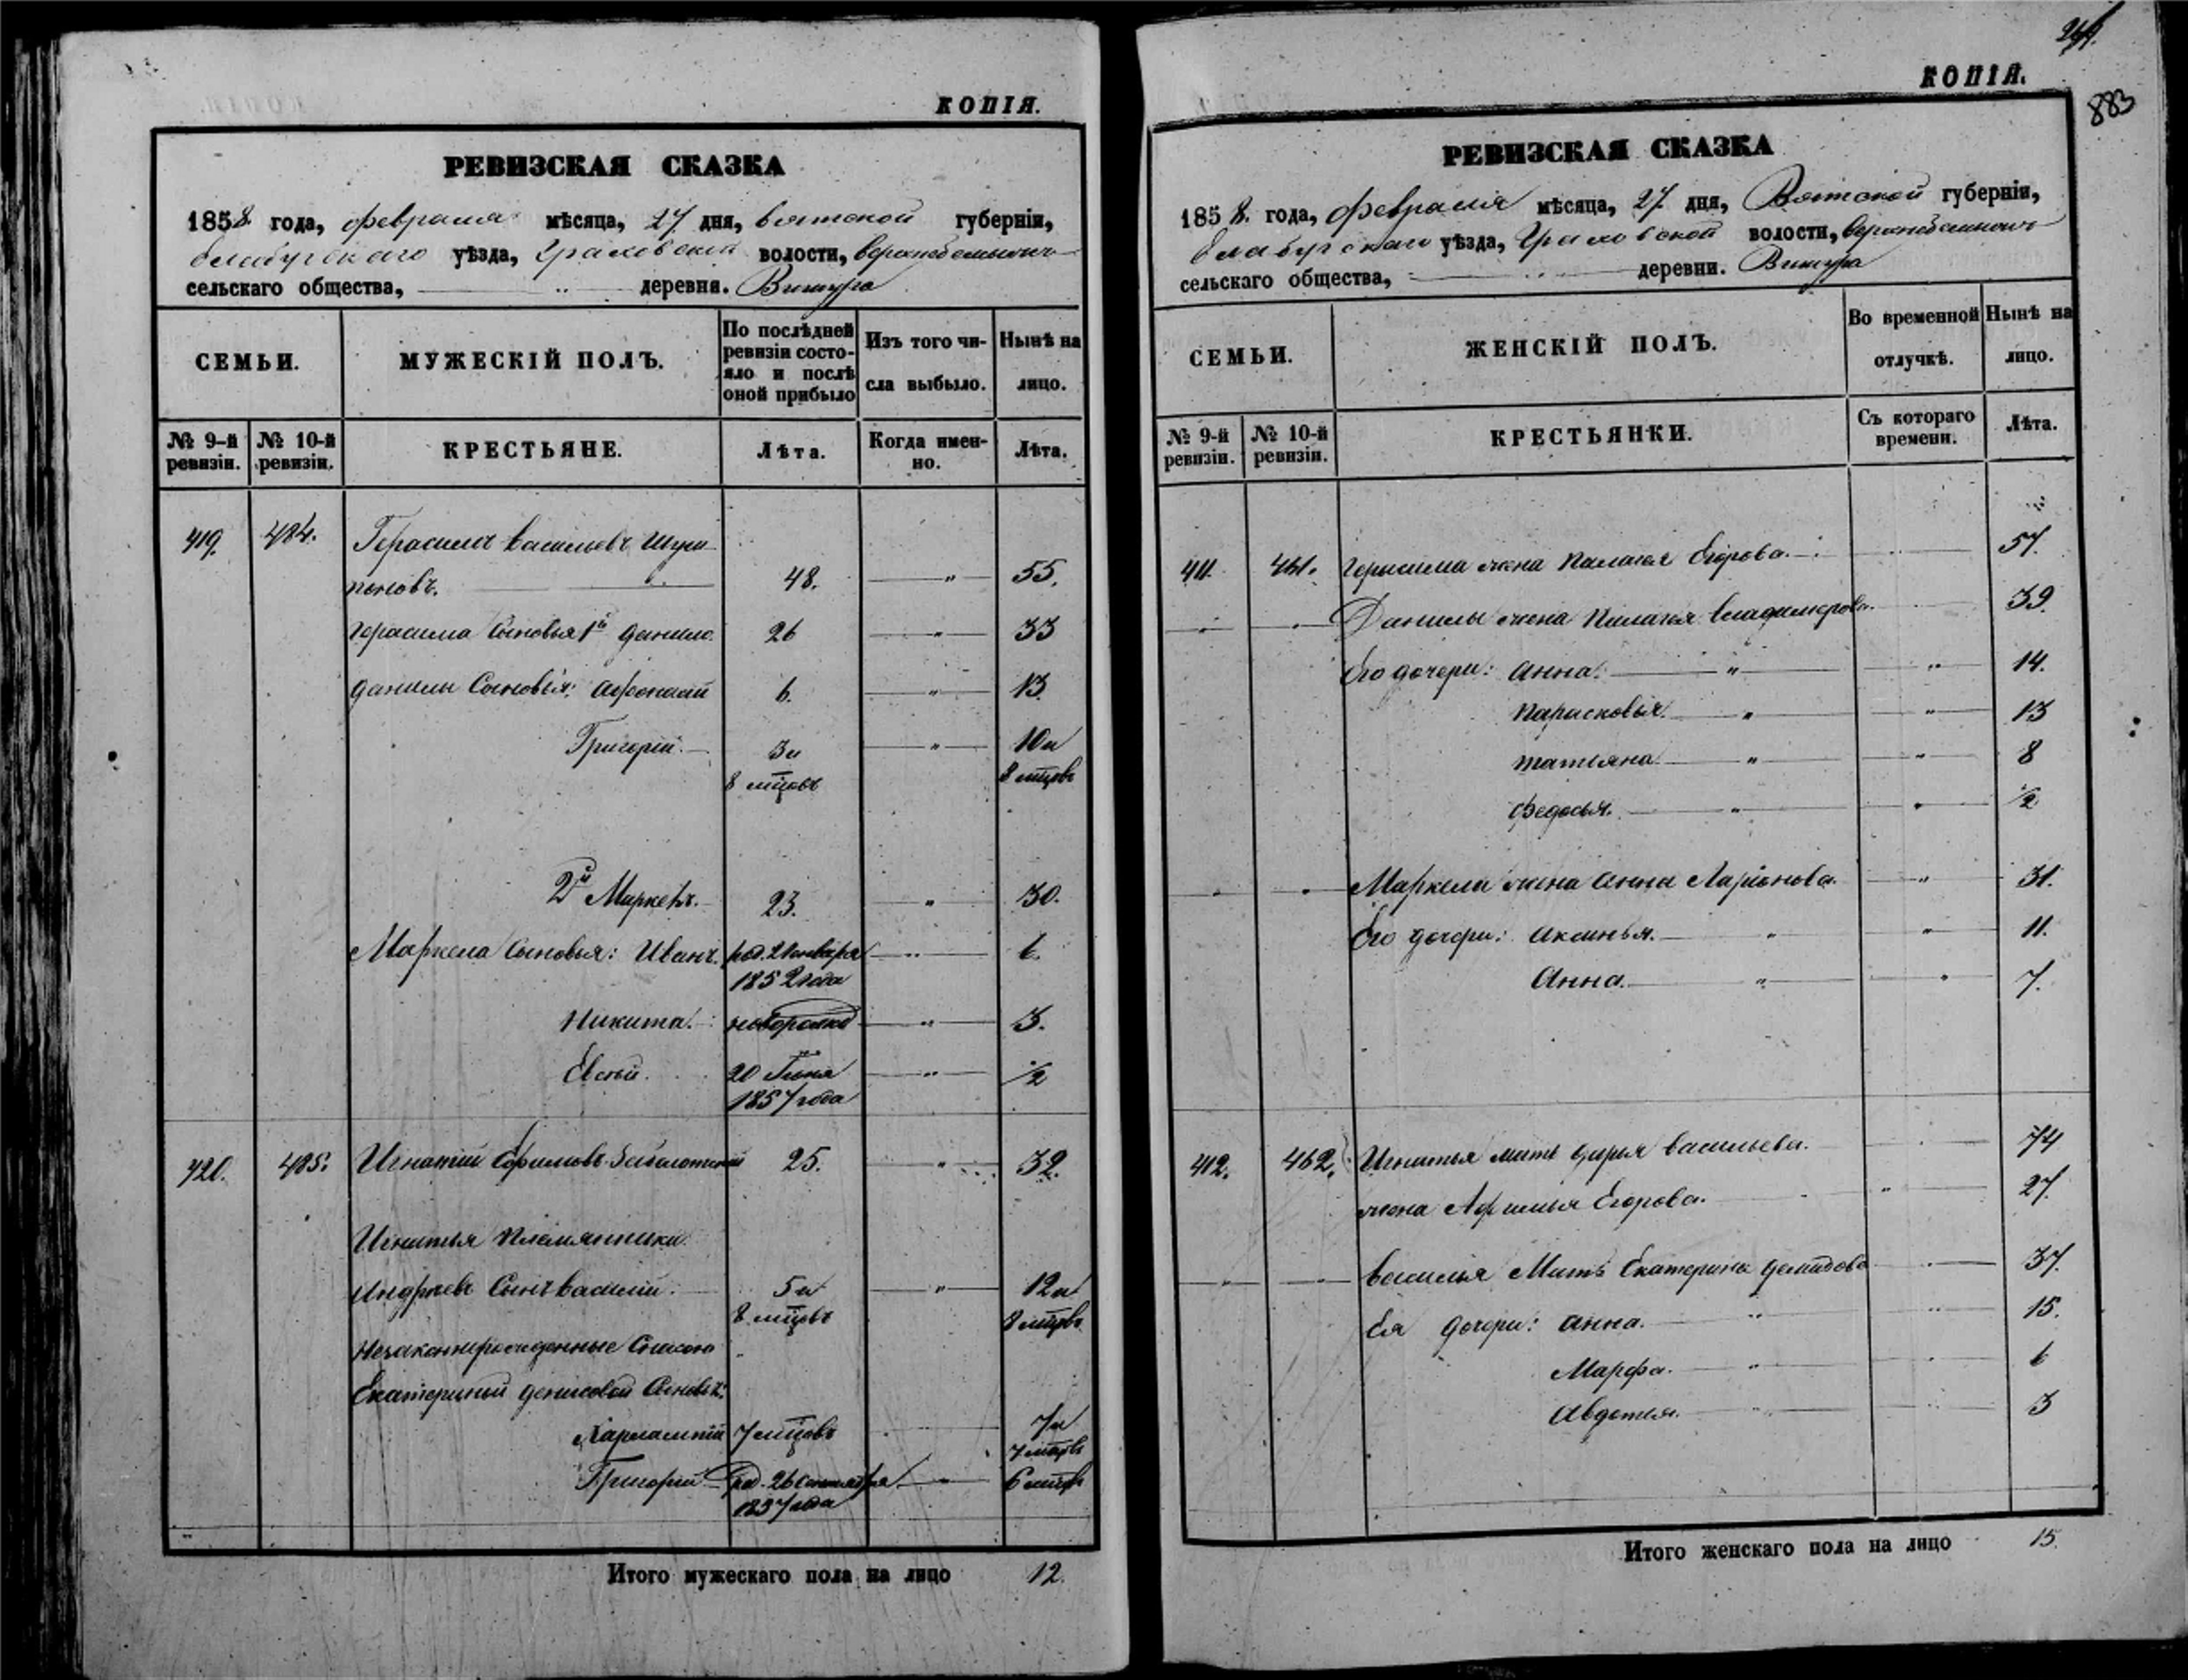 КОПІЯ.
РЕВИЗСКАЯ СКАЗКА
1858 года, февраля мѣсяца, 27 дня, вятской губерніи,
елабугскаго уѣзда, Граховской волости,
сельскаго общества, деревня.
СЕМЬИ.
МУЖЕСКІЙ ПОЛЪ.
По послѣдней ревизіи состо-
яло и послѣ
оной прибыло
Изъ того чи-
сла выбыло.
Нынѣ на
лицо.
№ 9-й ревизіи.
№ 10-й ревизіи.
КРЕСТЬЯНЕ.
Лѣта.
Когда имен-
но.
Лѣта.
419. 484. Герасимъ Васильевъ
48. 55.
Герасима Сыновья 1й Данило 26 33
Данилы Сыновья: Афонасій 6. 13.
Григорій. 3 и 10 и
8 мцовъ 8 мцовъ
2й Маркелъ. 23. 30.
Маркела Сыновья: Иванъ. род. Января 6.
1852 года
Никита. 3.
Евсѣй. 20 Іюня 1/2
1857 года
420. 485. Игнатій Ефимовъ 25. 32.
Игнатья племянники
Андреевъ Сынъ Василій. 5 и 12 и
8 мцовъ 8 мцовъ
Незаконнорожденные
Екатериной Сыновья:
Харлампій 7 мцовъ 7 и
7 мцовъ
Григорій род. 26 Сентября 6 мцовъ
1857 года
Итого мужескаго пола на лицо 12.
КОПІЯ.
883
РЕВИЗСКАЯ СКАЗКА
1858. года, февраля мѣсяца, 27 дня, Вятской губерніи,
елабугскаго уѣзда, Граховской волости,
сельскаго общества, деревни.
СЕМЬИ.
ЖЕНСКІЙ ПОЛЪ.
Во временной
отлучкѣ.
Нынѣ на
лицо.
№ 9-й ревизіи.
№ 10-й ревизіи.
КРЕСТЬЯНКИ.
Съ котораго
времени.
Лѣта.
411. 461. Герасима жена Палагея Егорова. 57.
Данилы жена Палагея Владимерова. 39.
Его дочери: Анна. 14.
Парасковья. 13
Татьяна 8
Федосья. 1/2
Маркела жена Анна Ларіонова. 31.
Его дочери: Аксинья. 11.
Анна. 7.
412. 462. Игнатья мать Дарья Васильева. 74
жена Афимья Егорова. 27.
Василья Мать Екатерина 37.
Ея дочери: Анна. 15.
Марфа. 6
Авдотья. 3
Итого женскаго пола на лицо 15.